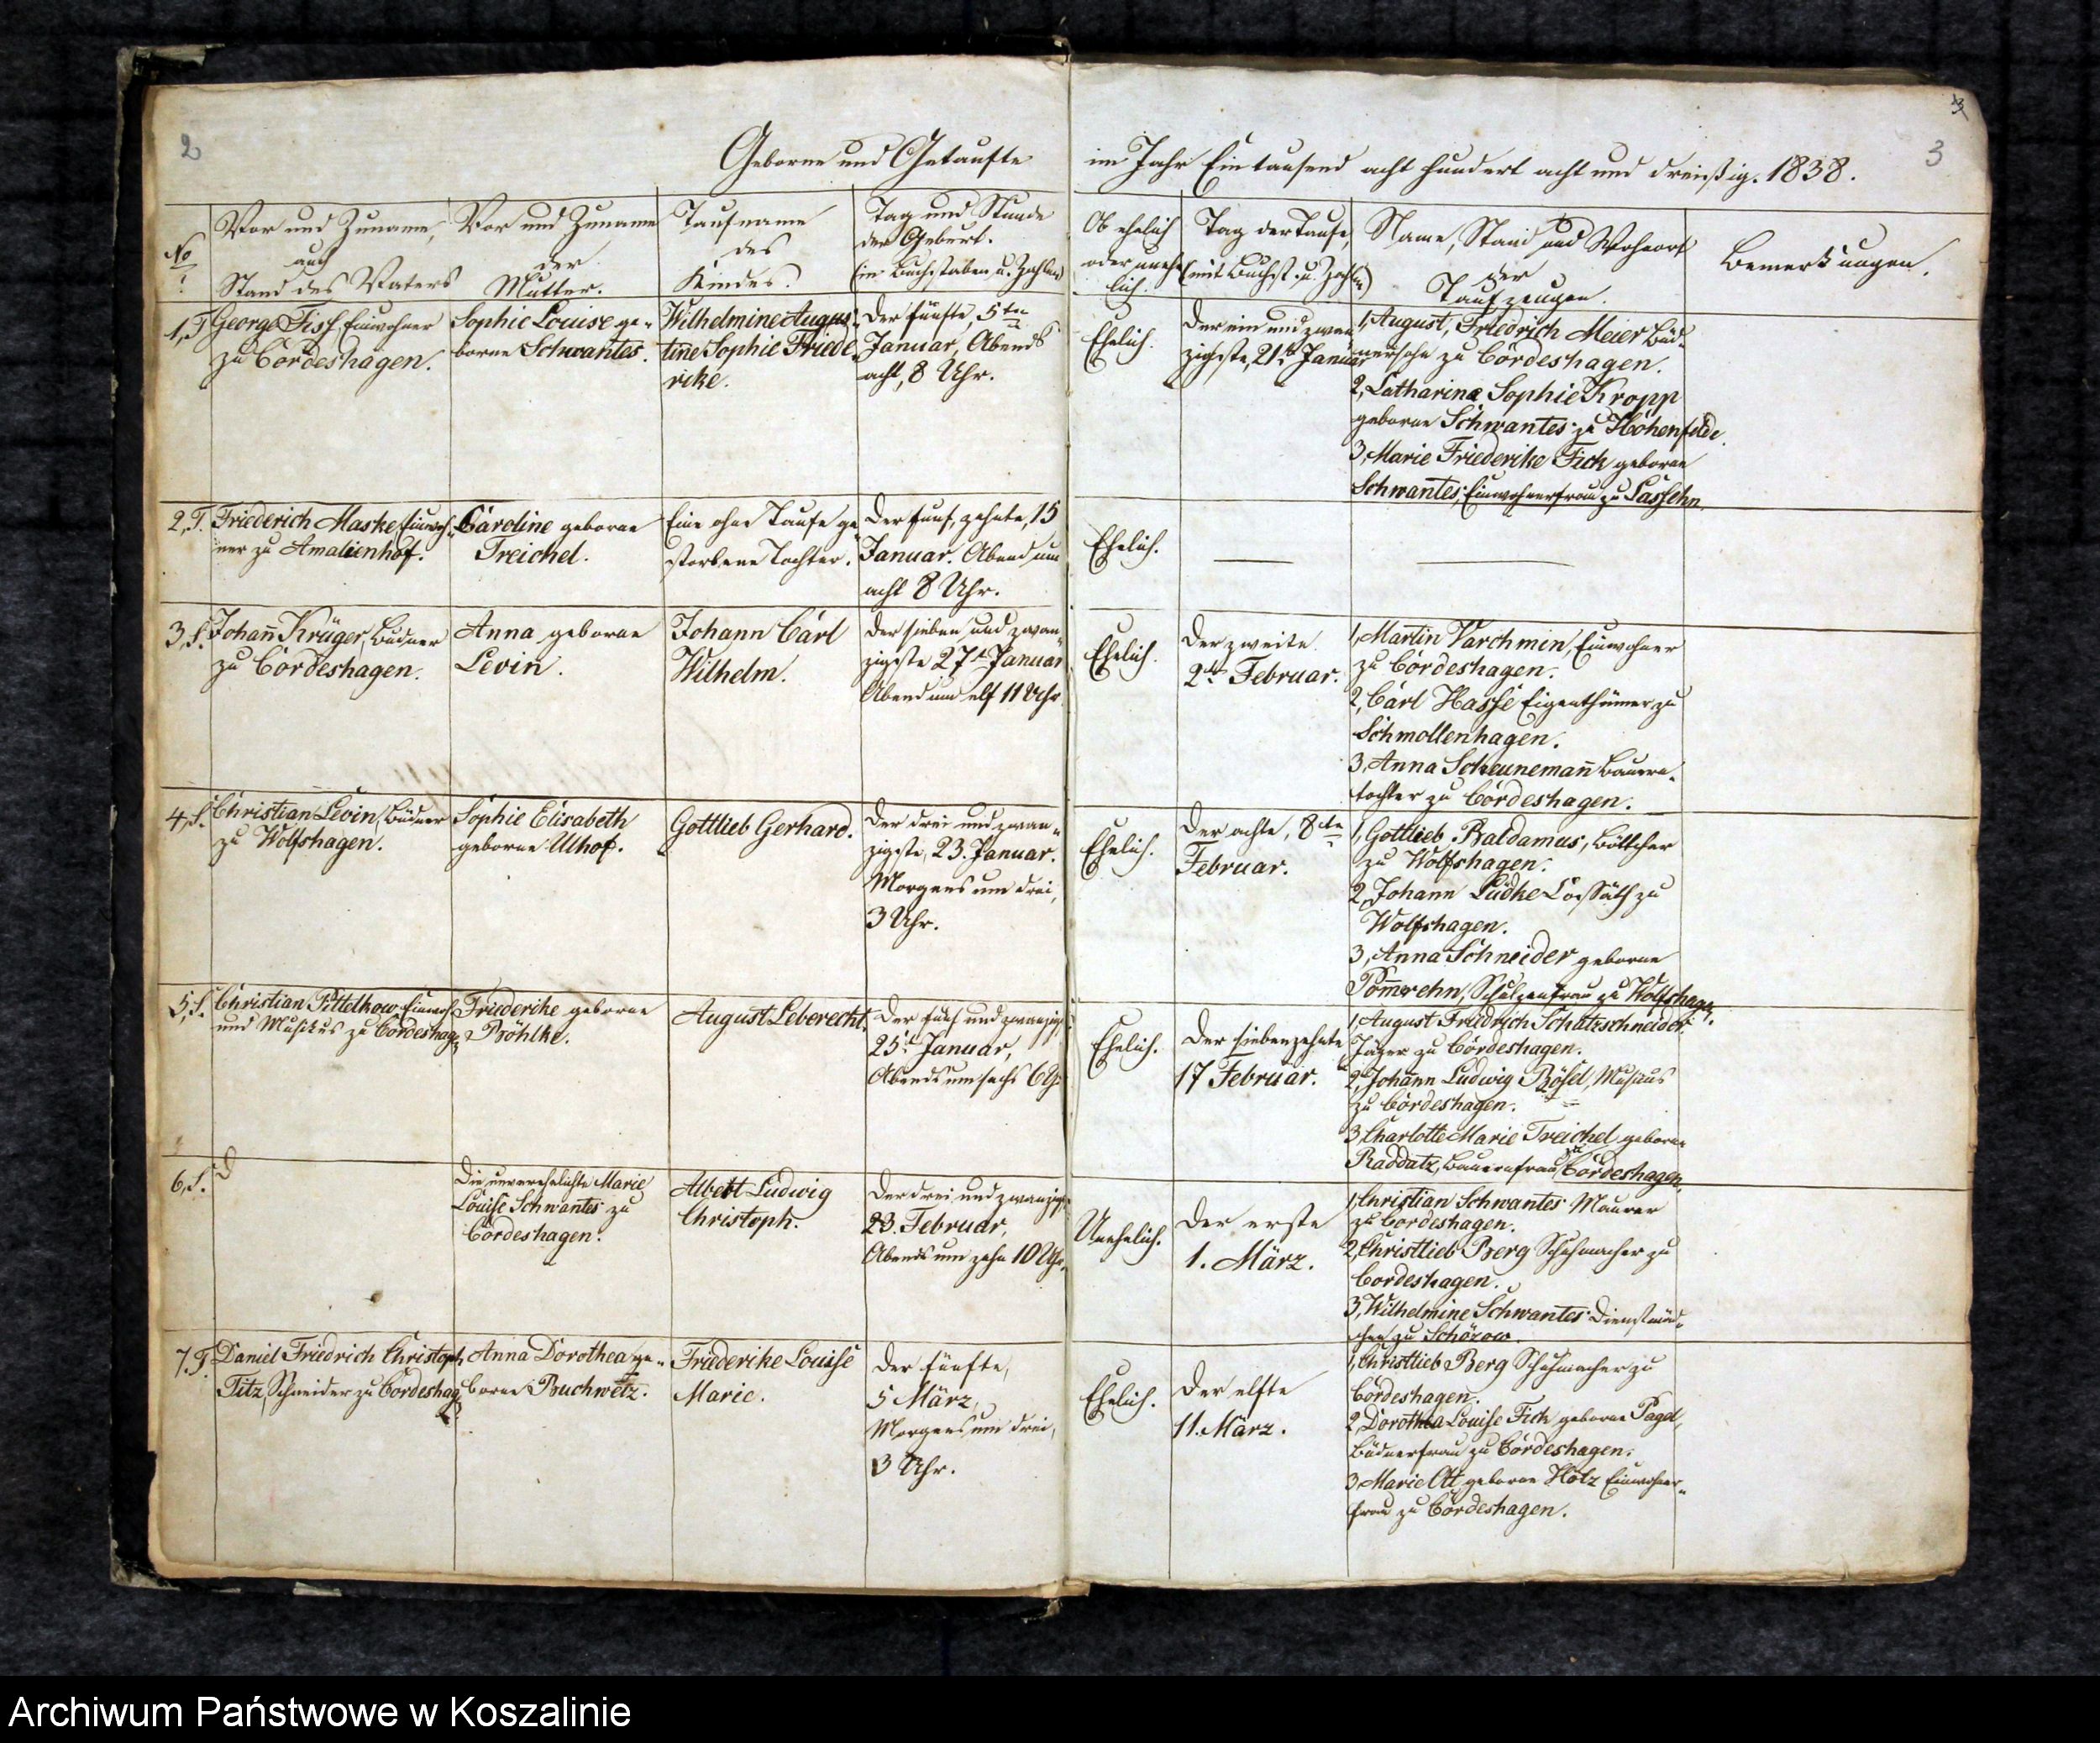 2
Geborne und Getaufte
No
Vor und Zuname,
auch
Stand des Vaters
Vor und Zuname
der
Mutter.
Taufname
des
Kindes.
Tag und Stunde
der Geburt.
(in Buchstaben u. Zahlen)
1, T.
George Fisch, Einwohner
zu Cördeshagen.
Sophie Louise ge-
borne Schwantes.
Wilhelmine Augus-
tine Sophie Friede-
rike.
Der fünfte, 5ten
Januar, Abends
acht, 8 Uhr.
2, T.
Friederich Maske, Einwoh-
ner zu Amalienhof.
Caroline geborne
Treichel.
Eine ohne Taufe ge-
storbene Tochter.
Der funfzehnte, 15
Januar. Abend um
acht 8 Uhr.
3, S.
Johan̄ Krüger, Büdner
zu Cördeshagen.
Anna geborne
Levin.
Johann Carl
Wilhelm.
Der sieben und zwan-
zigste 27t Januar
Abend um elf 11 Uhr
4, S.
Christian Levin, Büdner
zu Wolfshagen.
Sophie Elisabeth
geborne Uthof.
Gottlieb Gerhard.
Der drei und zwan-
zigste, 23. Januar.
Morgens um drei,
3 Uhr.
5, S.
Christian Pittelkow, Einwoh.
und Musikus zu Cördeshag.
Friederike geborne
Böhlke.
August Leberecht.
Der fünf und zwanzigs.
25t Januar,
Abends um sechs 6 U.
6, S.
Die unverehelichte Marie
Louise Schwantes zu
Cördeshagen.
Albert Ludwig
Christoph.
Der drei und zwanzigs.
23. Februar,
Abends um zehn 10 Uhr.
7. T.
Daniel Friedrich Christoph
Titz, Schneider zu Cördeshag.
Anna Dorothea ge-
borne Buchwetz.
Friederike Louise
Marie.
Der fünfte,
5 März,
Morgens um drei,
3 Uhr.
3
3
im Jahr Ein tausend acht hundert acht und dreißig. 1838.
Ob ehelich
oder unehe-
lich.
Tag der Taufe,
(mit Buchst. u. Zahlen)
Name, Stand und Wohnort
der
Taufzeugen.
Bemerkungen.
Ehelich.
Der ein und zwan-
zigste, 21te Januar
1, August, Friedrich Meier Büd-
nersohn zu Cördeshagen.
2, Catharina Sophie Kropp
geborne Schwantes zu Hohenfelde.
3, Marie Friederike Fick geborne
Schwantes, Einwohnerfrau zu Lassehn.
Ehelich.
Ehelich.
Der zweite
2te Februar.
1, Martin Varchmin, Einwohner
zu Cördeshagen.
2, Carl Hasse Eigenthümer zu
Schmollenhagen.
3, Anna Scheuneman̄ Bauern-
tochter zu Cördeshagen.
Ehelich.
Der achte, 8te
Februar.
1, Gottlieb Baldamus, Böttcher
zu Wolfshagen.
2, Johann Lüdke Cossäth zu
Wolfshagen.
3, Anna Schneider geborne
Pom̄rehn, Schulzenfrau zu Wolfshagen.
Ehelich.
Der siebenzehnte
17 Februar.
1, August Friedrich Schutzschneider
Jäger zu Cördeshagen.
2, Johann Ludwig Bösel, Musicus
zu Cördeshagen.
3, Charlotte Marie Treichel geborne
Raddatz, Bauernfrau zu Cördeshagen.
Unehelich.
Der erste
1. März.
1, Christian Schwantes Maurer
zu Cördeshagen.
2, Christlieb Berg Schuhmacher zu
Cordeshagen.
3, Wilhelmine Schwantes Dienstmäd-
chen zu Schötzow.
Ehelich.
Der elfte
11. März.
1, Christlieb Berg Schuhmacher zu
Cördeshagen.
2 Dorothea Louise Fick geborne Pagel,
Büdnerfrau zu Cördeshagen.
3 Marie Ott geborne Holz Einwohner-
frau zu Cördeshagen.
Archiwum Państwowe w Koszalinie